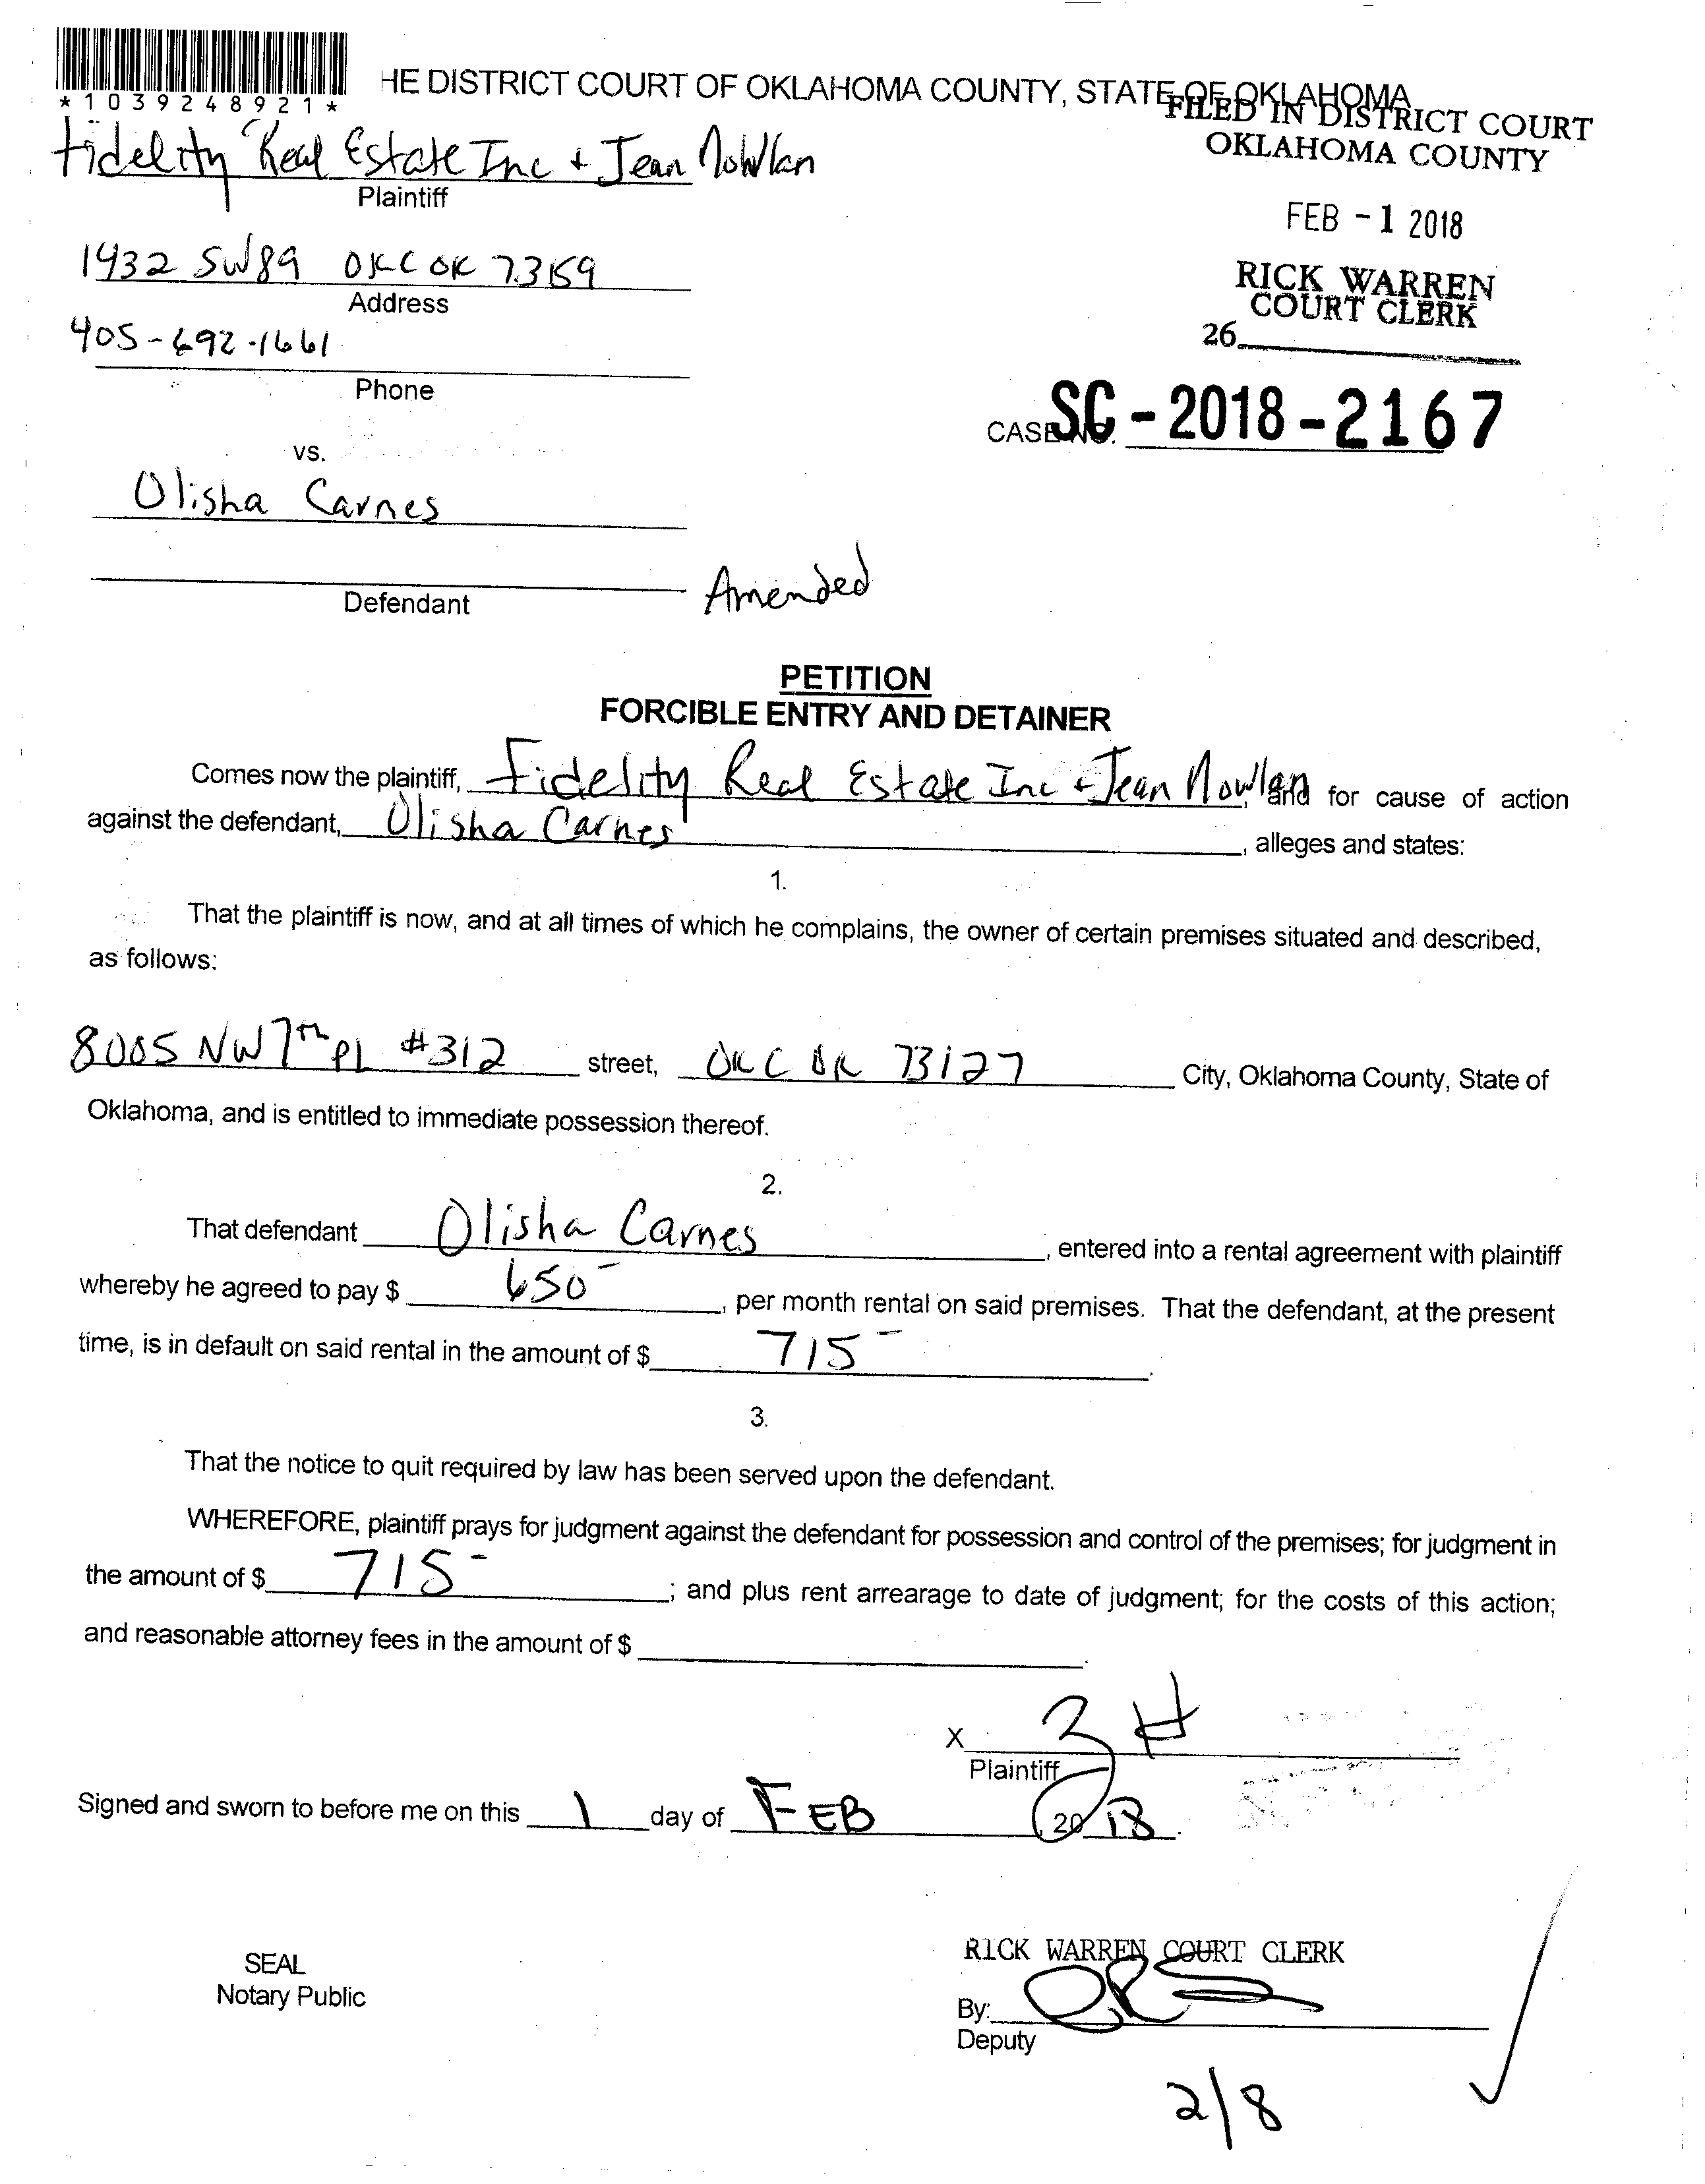 *1039248921*
HE DISTRICT COURT OF OKLAHOMA COUNTY, STATE OF OKLAHOMA
FILED IN DISTRICT COURT
OKLAHOMA COUNTY
Fidelity Real Estate Inc + Jean Nowlan
Plaintiff
FEB -1 2018
1432 SW89 OKC OK 73159
Address
RICK WARREN
COURT CLERK
405-692-1661
26
Phone
CASE NO. SC-2018-2167
vs.
Olisha Carnes
Defendant
Amended
PETITION
FORCIBLE ENTRY AND DETAINER
Comes now the plaintiff, Fidelity Real Estate Inc + Jean Nowlan, and for cause of action
against the defendant, Olisha Carnes, alleges and states:
1.
That the plaintiff is now, and at all times of which he complains, the owner of certain premises situated and described,
as follows:
8005 NW 7th PL #312 street, OKC OK 73127 City, Oklahoma County, State of
Oklahoma, and is entitled to immediate possession thereof.
2.
That defendant Olisha Carnes, entered into a rental agreement with plaintiff
whereby he agreed to pay $ 650-, per month rental on said premises. That the defendant, at the present
time, is in default on said rental in the amount of $ 715-.
3.
That the notice to quit required by law has been served upon the defendant.
WHEREFORE, plaintiff prays for judgment against the defendant for possession and control of the premises; for judgment in
the amount of $ 715-; and plus rent arrearage to date of judgment; for the costs of this action;
and reasonable attorney fees in the amount of $ .
X
Plaintiff
Signed and sworn to before me on this 1 day of FEB, 2018.
RICK WARREN COURT CLERK
SEAL
Notary Public
By:
Deputy
2/8